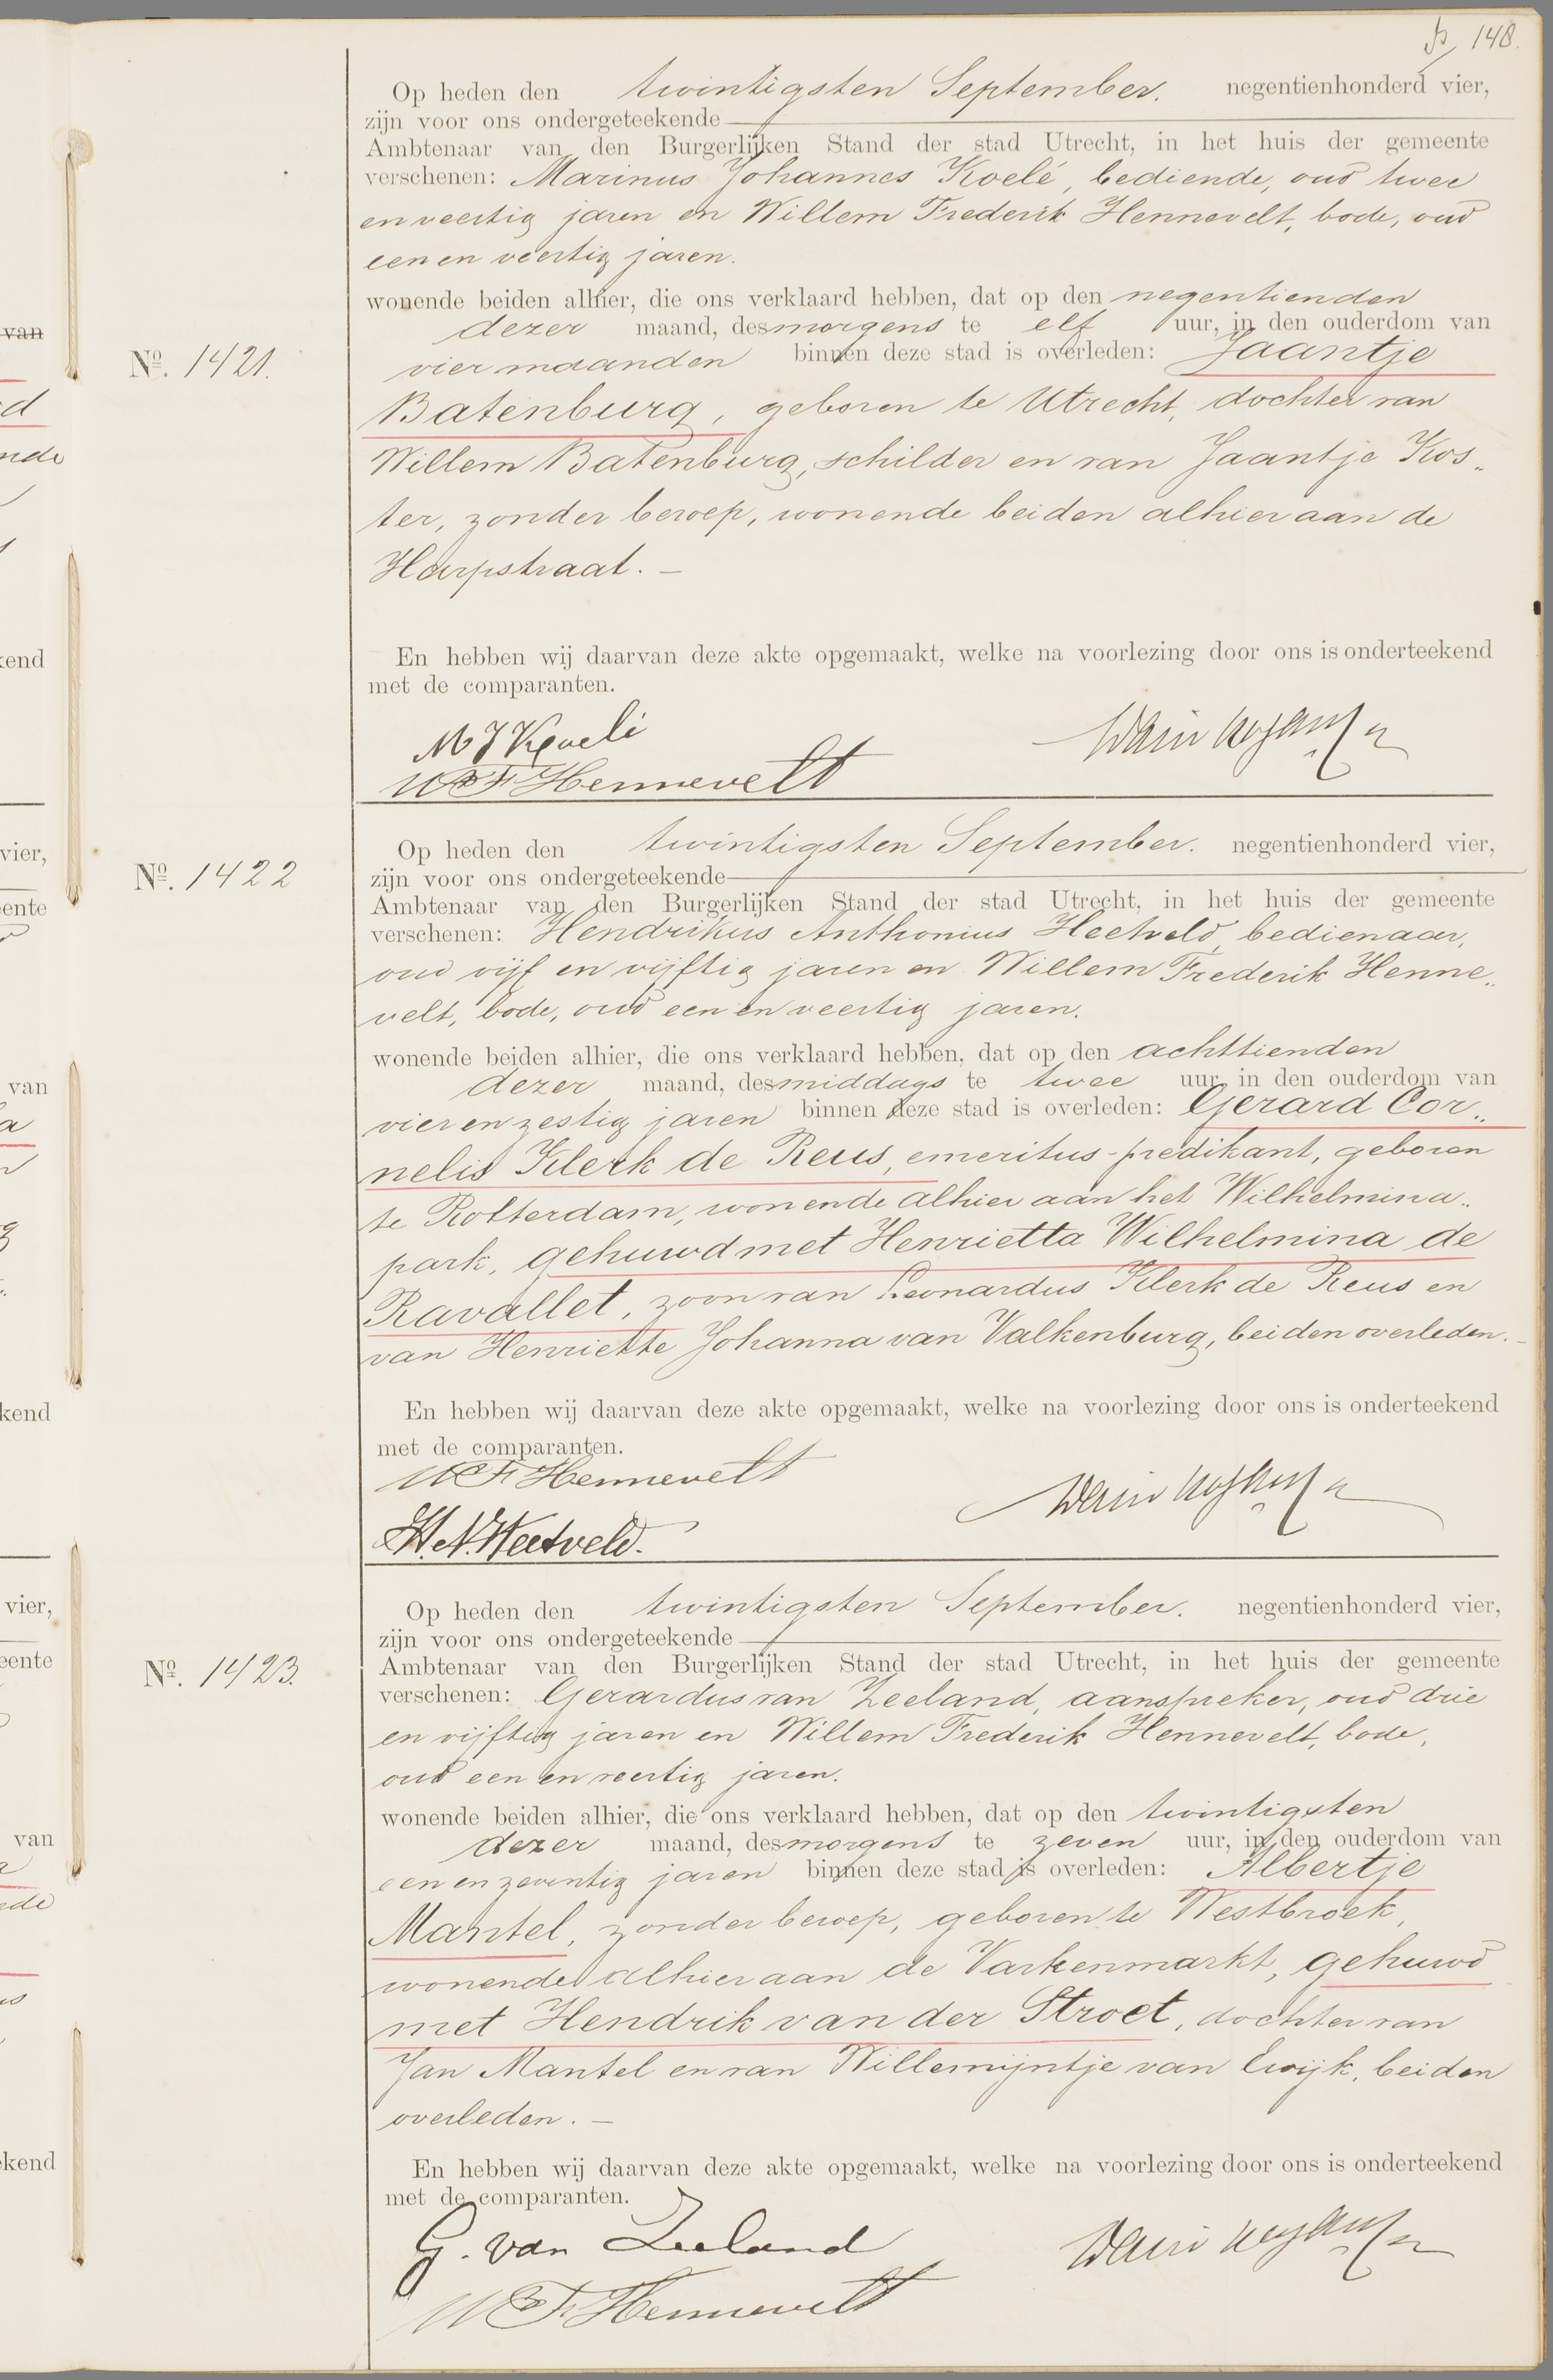 148.
Op heden den twintigsten September. negentienhonderd vier,
zijn voor ons ondergeteekende
Ambtenaar van den Burgerlijken Stand der stad Utrecht, in het huis der gemeente
verschenen: Marinus Johannes Koelé, bediende, oud twee
en veertig jaren en Willem Frederik Hennevelt, bode, oud
een en veertig jaren.
wonende beiden alhier, die ons verklaard hebben, dat op den negentienden
dezer maand, des morgens te elf uur, in den ouderdom van
No. 1421.
vier maanden binnen deze stad is overleden: Jaantje
Batenburg, geboren te Utrecht, dochter van
Willem Batenburg, schilder en van Jaantje Kos„
ter, zonder beroep, wonende beiden alhier aan de
Harpstraat. —
En hebben wij daarvan deze akte opgemaakt, welke na voorlezing door ons is onderteekend
met de comparanten.
M J Koelé
W F Hennevelt
Op heden den twintigsten September. negentienhonderd vier,
No. 1422
zijn voor ons ondergeteekende
Ambtenaar van den Burgerlijken Stand der stad Utrecht, in het huis der gemeente
verschenen: Hendrikus Anthonius Heetveld, bedienaar,
oud vijf en vijftig jaren en Willem Frederik Henne„
velt, bode, oud een en veertig jaren.
wonende beiden alhier, die ons verklaard hebben, dat op den achttienden
dezer maand, des middags te twee uur, in den ouderdom van
vier en zestig jaren binnen deze stad is overleden: Gerard Cor„
nelis Klerk de Reus, emeritus-predikant, geboren
te Rotterdam, wonende alhier aan het Wilhelmina„
park, gehuwd met Henrietta Wilhelmina de
Ravallet, zoon van Leonardus Klerk de Reus en
van Henriette Johanna van Valkenburg, beiden overleden. —
En hebben wij daarvan deze akte opgemaakt, welke na voorlezing door ons is onderteekend
met de comparanten.
W F Hennevelt
H. A. Heetveld.
Op heden den twintigsten September. negentienhonderd vier,
zijn voor ons ondergeteekende
No. 1423.
Ambtenaar van den Burgerlijken Stand der stad Utrecht, in het huis der gemeente
verschenen: Gerardus van Zeeland, aanspreker, oud drie
en vijftig jaren en Willem Frederik Hennevelt, bode,
oud een en veertig jaren.
wonende beiden alhier, die ons verklaard hebben, dat op den twintigsten
dezer maand, des morgens te zeven uur, in den ouderdom van
een en zeventig jaren binnen deze stad is overleden: Albertje
Mantel, zonder beroep, geboren te Westbroek,
wonende alhier aan de Varkenmarkt, gehuwd
met Hendrik van der Stroet, dochter van
Jan Mantel en van Willemijntje van Ewijk, beiden
overleden. —
En hebben wij daarvan deze akte opgemaakt, welke na voorlezing door ons is onderteekend
met de comparanten.
G. van Zeeland
W F Hennevelt